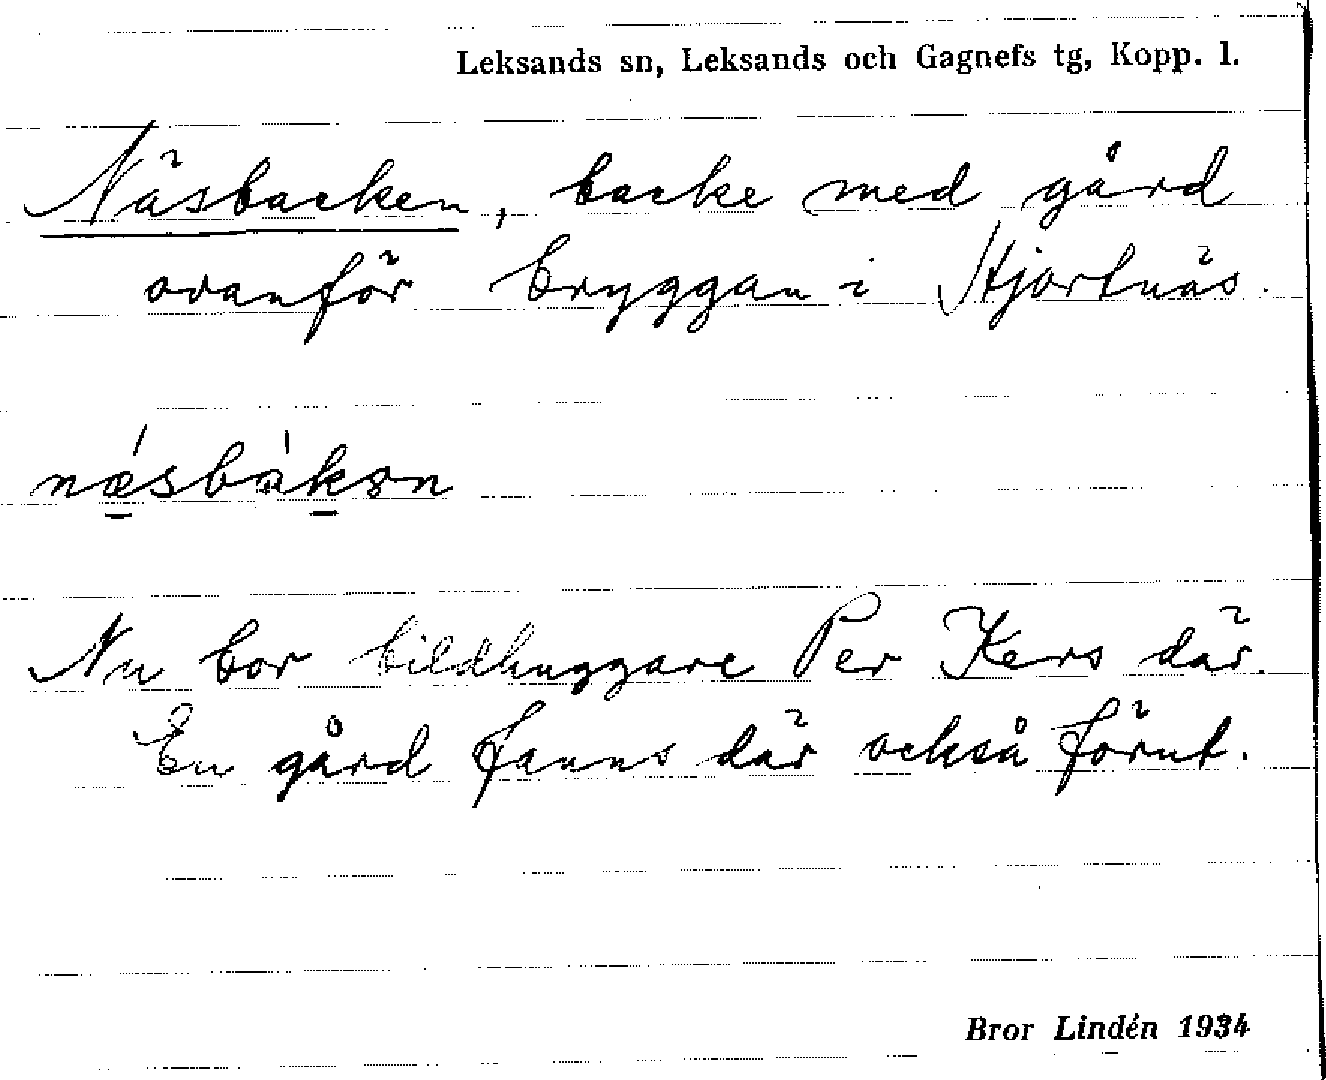 Leksands sn, Leksands och Gagnefs tg, Kopp. l.
Näsbacken, backe med gård
ovanför bryggan i Hjortnäs.
næsbakən
Nu bor bildhuggare Per Kers där.
En gård fanns där också förut.
Bror Lindén 1934